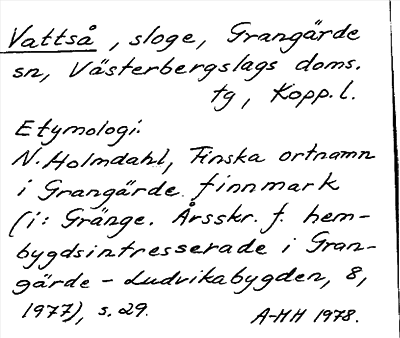 Vattså, sloge, Grangärde
sn, Västerbergslags doms.
tg, Kopp.l.
Etymologi.
N. Holmdahl, Finska ortnamn
i Grangärde finnmark
(i: Gränge. Årsskr. f. hem-
bygdsintresserade i Gran-
gärde - Ludvikabygden, 8,
1977), s. 29.
A-HH 1978.